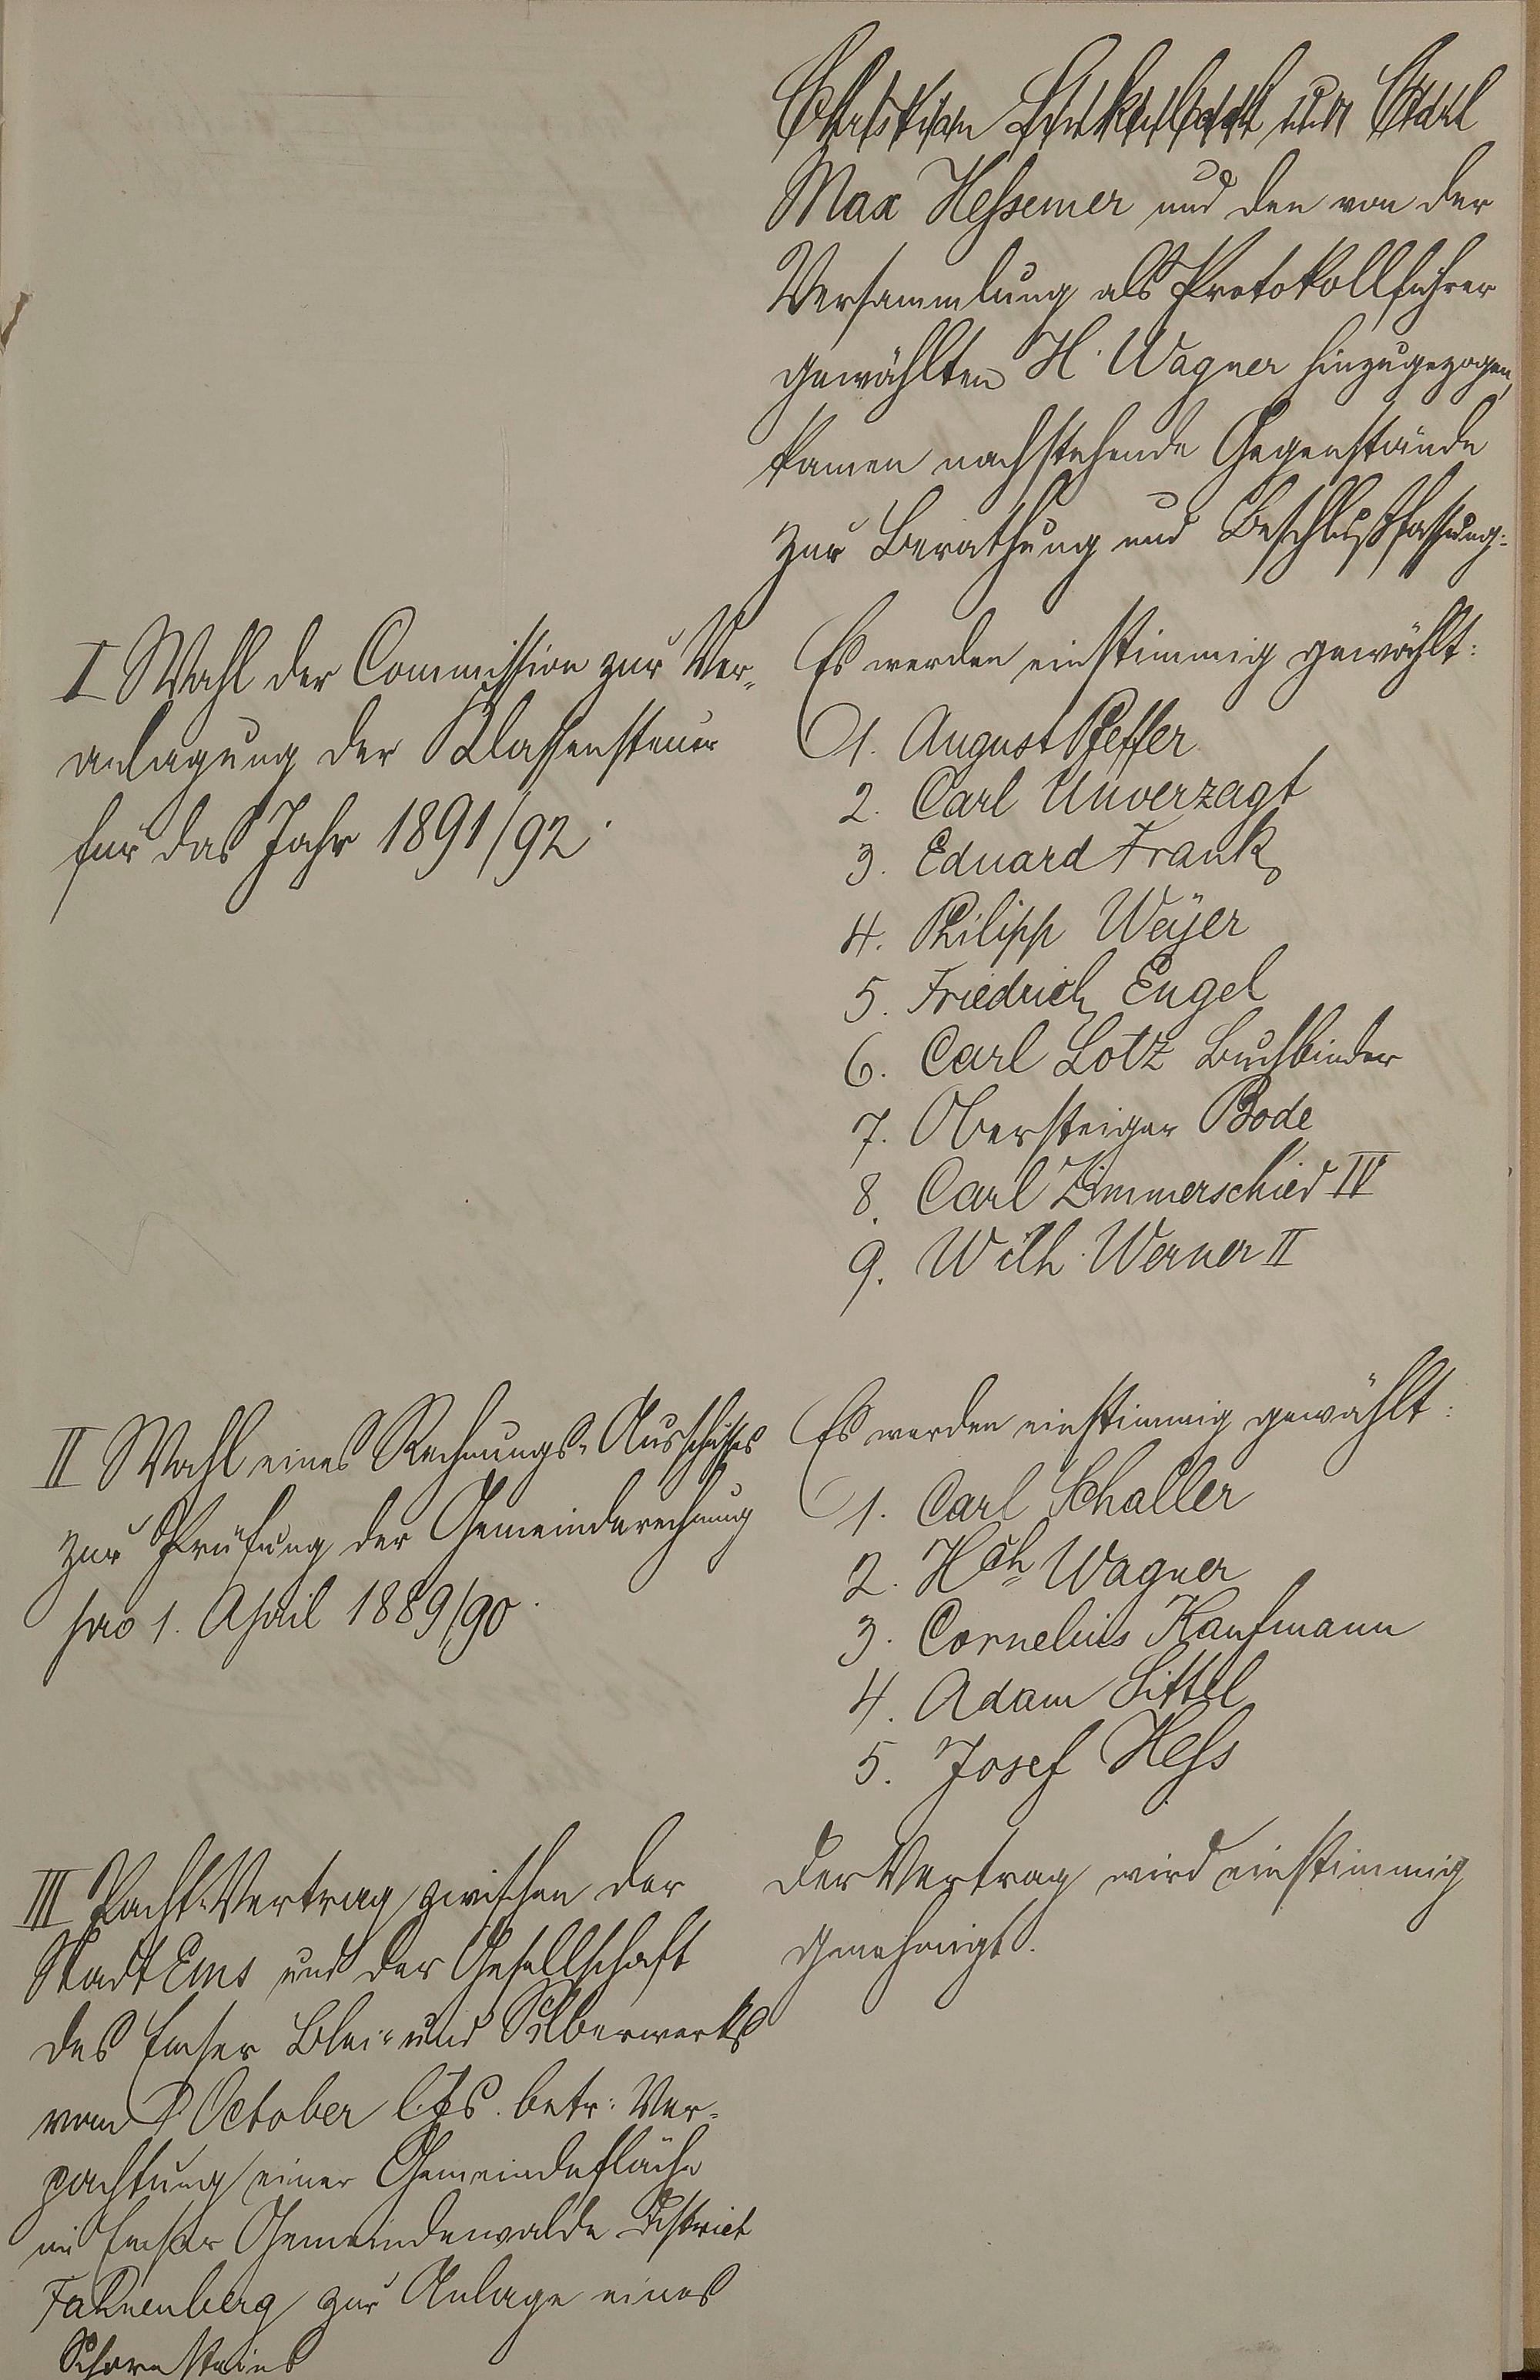 Christian Linkenbach und Carl
Max Heſsemer und den von der
Versammlung als Protokollführer
gewählten H. Wagner hinzugezogen,
kamen nachstehende Gegenstände
zur Berathung und Beschlußfassung:
I Wahl der Commission zur Ver-
anlagung der Klassensteuer
für das Jahr 1891/92.
Es werden einstimmig gewählt:
1. August Pfeffer
2. Carl Unverzagt
3. Eduard Frank
4. Philipp Weyer
5. Friedrich Engel
6. Carl Lotz Buchbinder
7. Obersteiger Bode
8. Carl Zimmerschied IV
9. Wilh. Werner II
II Wahl eines Rechnungs-Ausschusses
zur Prüfung der Gemeinderechnung
pro 1. April 1889/90.
Es werden einstimmig gewählt:
1. Carl Schaller
2. Hch Wagner
3. Cornelius Kaufmann
4. Adam Sittel
5. Josef Heſs
III Pacht-Vertrag zwischen der
Stadt Ems und der Gesellschaft
des Emser Blei- und Silberwerks
vom October l. Js. betr. Ver-
pachtung einer Gemeindefläche
im Emser Gemeindewalde District
Fahnenberg zur Anlage eines
Schornsteins
Der Vertrag wird einstimmig
genehmigt.